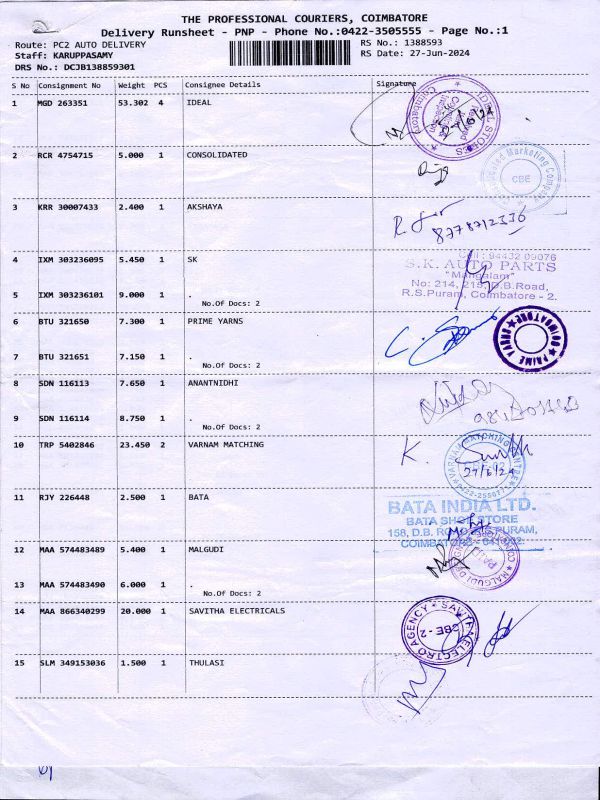 THE PROFESSIONAL COURIERS, COIMBATORE
Delivery Runsheet - PNP - Phone No.:0422-3505555 - Page No.:1
Route: PC2 AUTO DELIVERY
RS No.: 1388593
Staff: KARUPPASAMY
RS Date: 27-Jun-2024
DRS No.: DCJB138859301
S No Consignment No Weight PCS Consignee Details Signature
1 MGD 263351 53.302 4 IDEAL
2 RCR 4754715 5.000 1 CONSOLIDATED
CBE
3 KRR 30007433 2.400 1 AKSHAYA
8778712336
4 IXM 303236095 5.450 1 SK
Cell : 94432 09076
S.K. AUTO PARTS
"Mangalam"
No: 214, 215, D.B.Road,
R.S.Puram, Coimbatore - 2.
5 IXM 303236101 9.000 1 .
No.Of Docs: 2
6 BTU 321650 7.300 1 PRIME YARNS
PRIME YARNS COIMBATORE
7 BTU 321651 7.150 1 .
No.Of Docs: 2
8 SDN 116113 7.650 1 ANANTNIDHI
9 SDN 116114 8.750 1 .
No.Of Docs: 2
10 TRP 5402846 23.450 2 VARNAM MATCHING
K.
VARNAM MATCHING CENTRE
27/6/24
11 RJY 226448 2.500 1 BATA
BATA INDIA LTD.
BATA SHOE STORE
158, D.B. ROAD, R.S. PURAM,
COIMBATORE
12 MAA 574483489 5.400 1 MALGUDI
MALGUDI
13 MAA 574483490 6.000 1 .
No.Of Docs: 2
14 MAA 866340299 20.000 1 SAVITHA ELECTRICALS
SAVITHA ELECTRO AGENCY
CBE - 2
15 SLM 349153036 1.500 1 THULASI